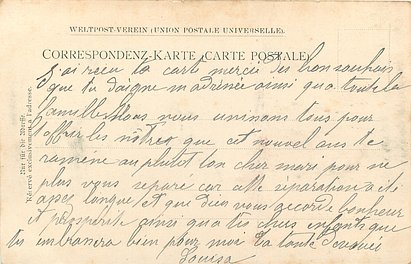 WELTPOST-VEREIN (UNION POSTALE UNIVERSELLE).
CORRESPONDENZ-KARTE (CARTE POSTALE)
Nur für die Adresse.
Réservé exclusivement à l'adresse.
J'ai recu ta cart merci des bon souhais
que tu daigne m adressée ainsi qua toute la
famille Nous nous unisons tous pour
t offrir les nôtres que cet nouvel ans te
ramène au plutot ton cher mari pour ne
plus vous separe car cette séparation a été
assez longue et que dieu vous accorde bonheur
et prospérité ainsi qua tes chers enfants que
tu embrassera bien pour moi ta tante dévouée
Louisa